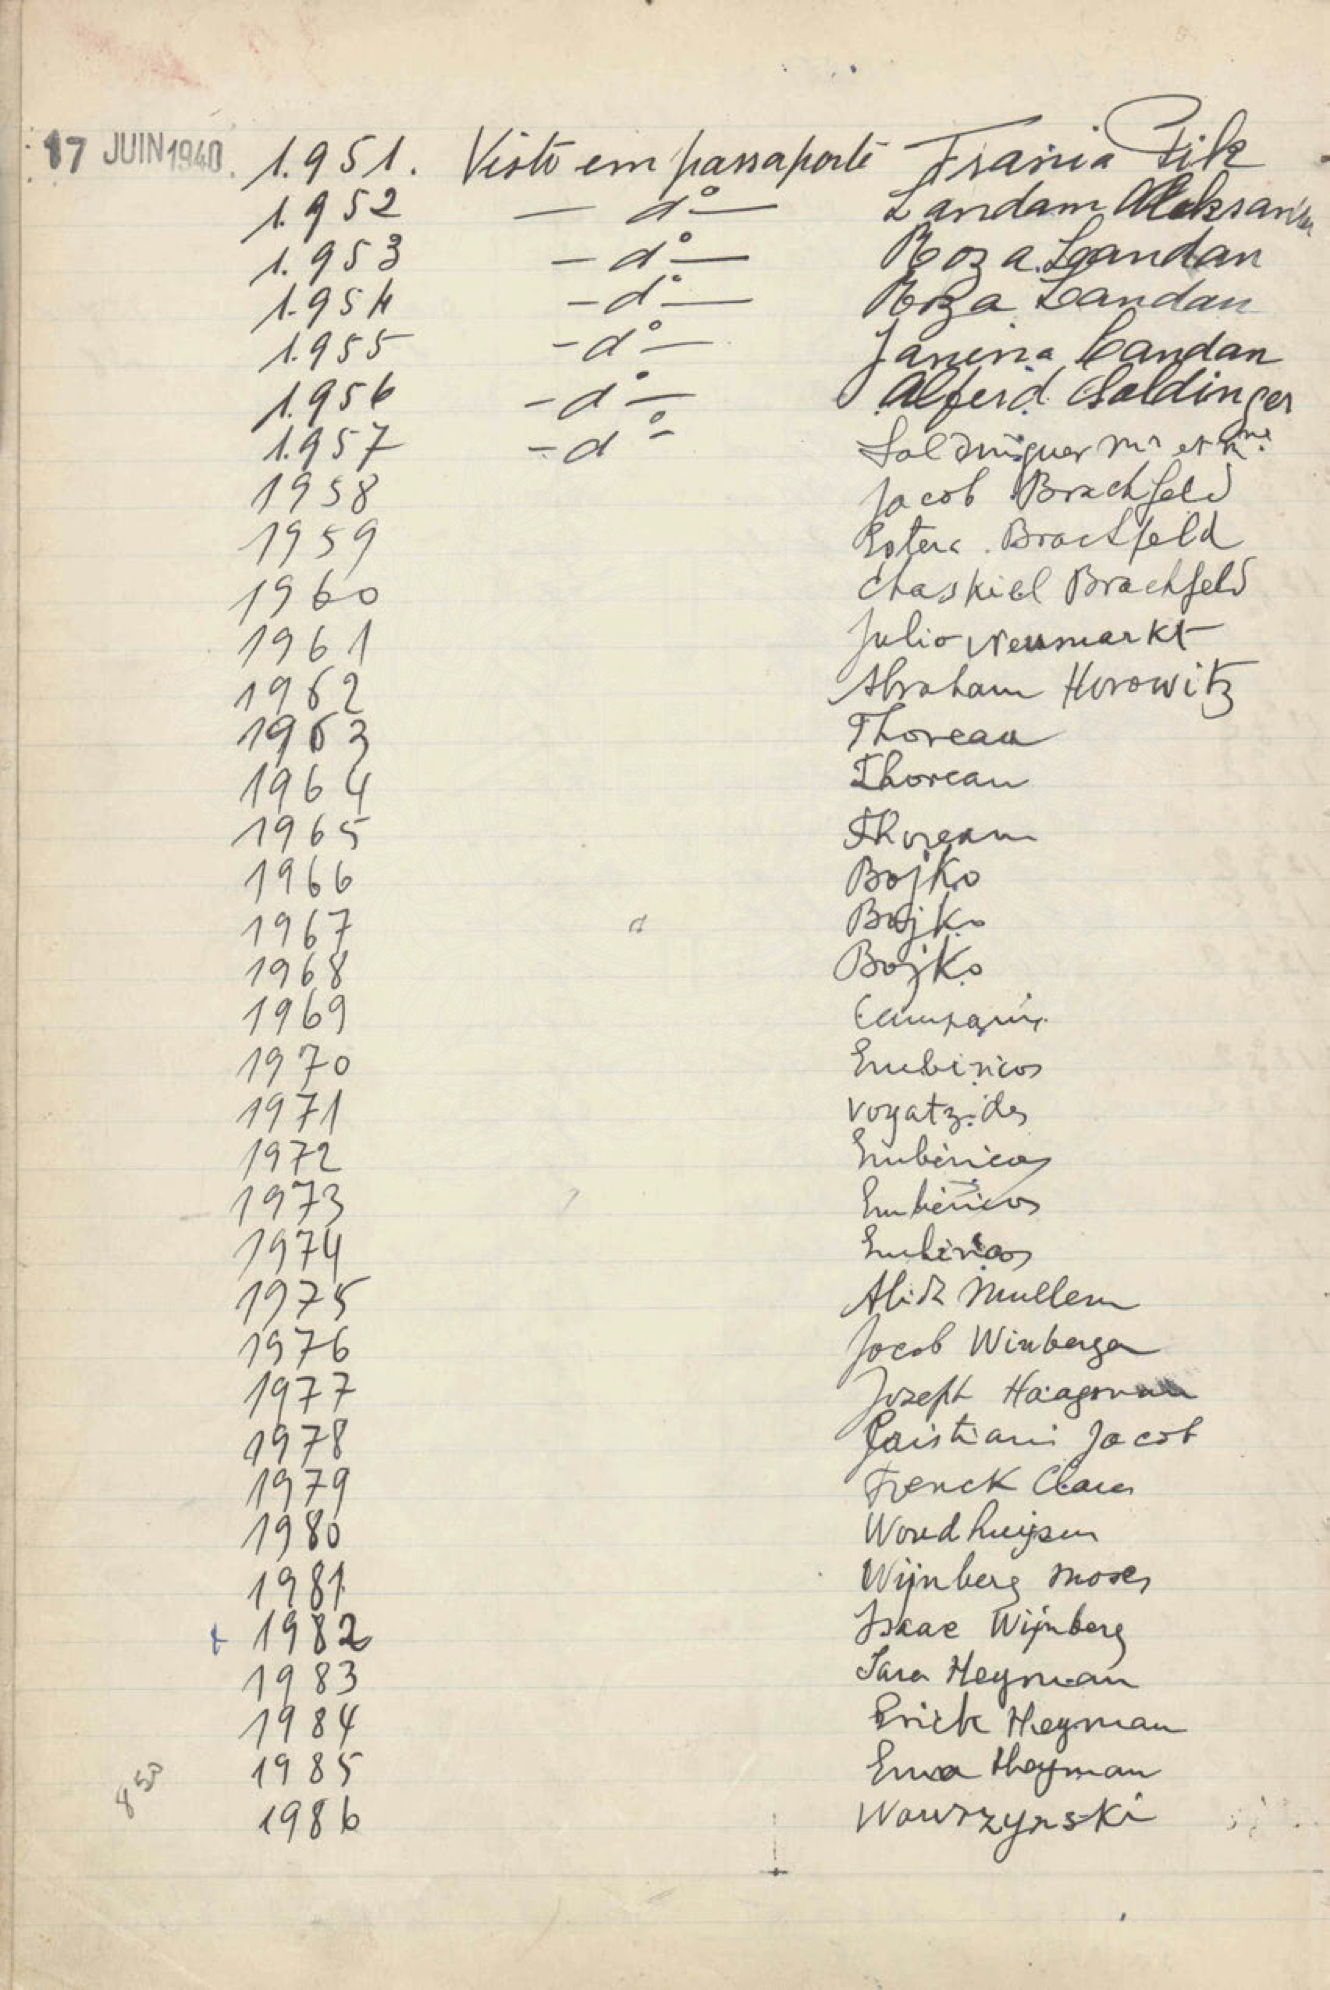 17 JUIN 1940 1.951. Visto em passaporte Frania Pik
1.952 — dº — Landam Aleksander
1.953 — dº — Roza Landan
1.954 — dº — Roza Landau
1.955 — dº — Janina Landan
1.956 — dº — Alferd Goldinger
1.957 — dº — Mr et Mme
1958 Jacob Brachfeld
1959 Estera Brachfeld
1960 Chaskiel Brachfeld
1961 Julio Neumarkt
1962 Abraham Horowitz
1963 Thoreau
1964 Thoreau
1965 Thoreau
1966 Bojko
1967 Bojko
1968 Bojko
1969
1970 Embiricos
1971 Vogatzides
1972 Embiricos
1973 Embiricos
1974 Embiricos
1975 Mullem
1976 Jacob Winberger
1977 Joseph Haagman
1978 Jacob
1979 Frenck Clara
1980 Woudhuijsen
1981 Wijnberg Moses
1982 Isaac Wijnberg
1983 Sara Heyman
1984 Erick Heyman
1985 Heyman
850
1986 Wawrzynski